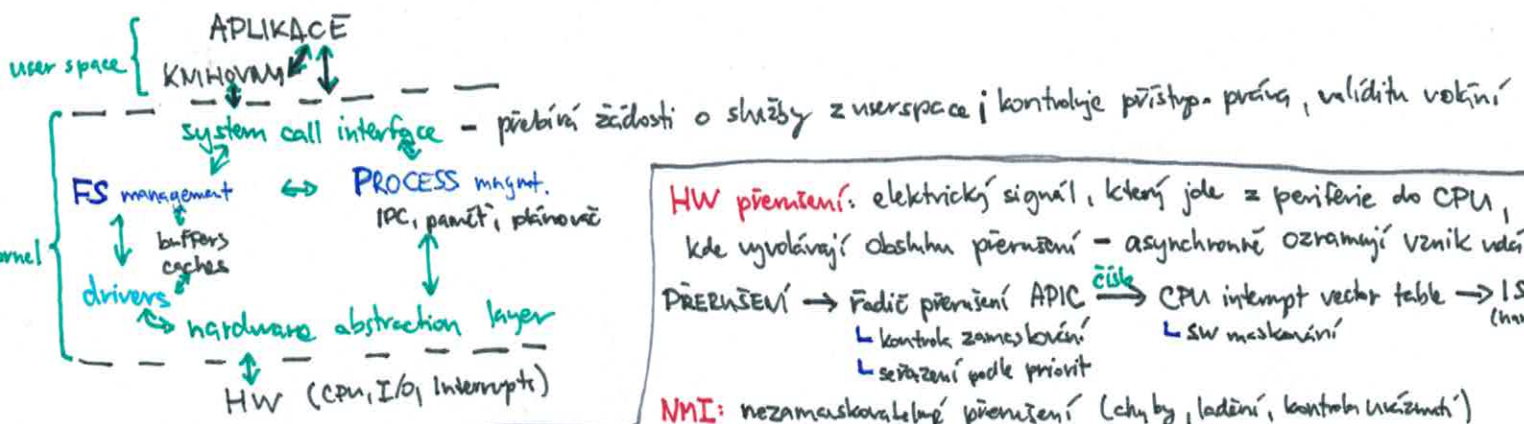 APLIKACE
user space
KNIHOVNY
system call interface - přebírá žádosti o služby z userspace; kontroluje přístup. práva, validitu volání
FS management ↔ PROCESS mngmt.
IPC, paměť, plánovač
buffers
caches
drivers
hardware abstraction layer
HW (CPU, I/O, Interrupts)
HW přerušení: elektrický signál, který jde z periferie do CPU,
kde vyvolávají obsluhu přerušení - asynchronně oznamují vznik
PŘERUŠENÍ → řadič přerušení APIC → číslo CPU interrupt vector table → IS
└ kontrola zamaskování └ SW maskování
└ seřazení podle priorit
NMI: nezamaskovatelné přerušení (chyby, ladění, kontrola uváznutí)